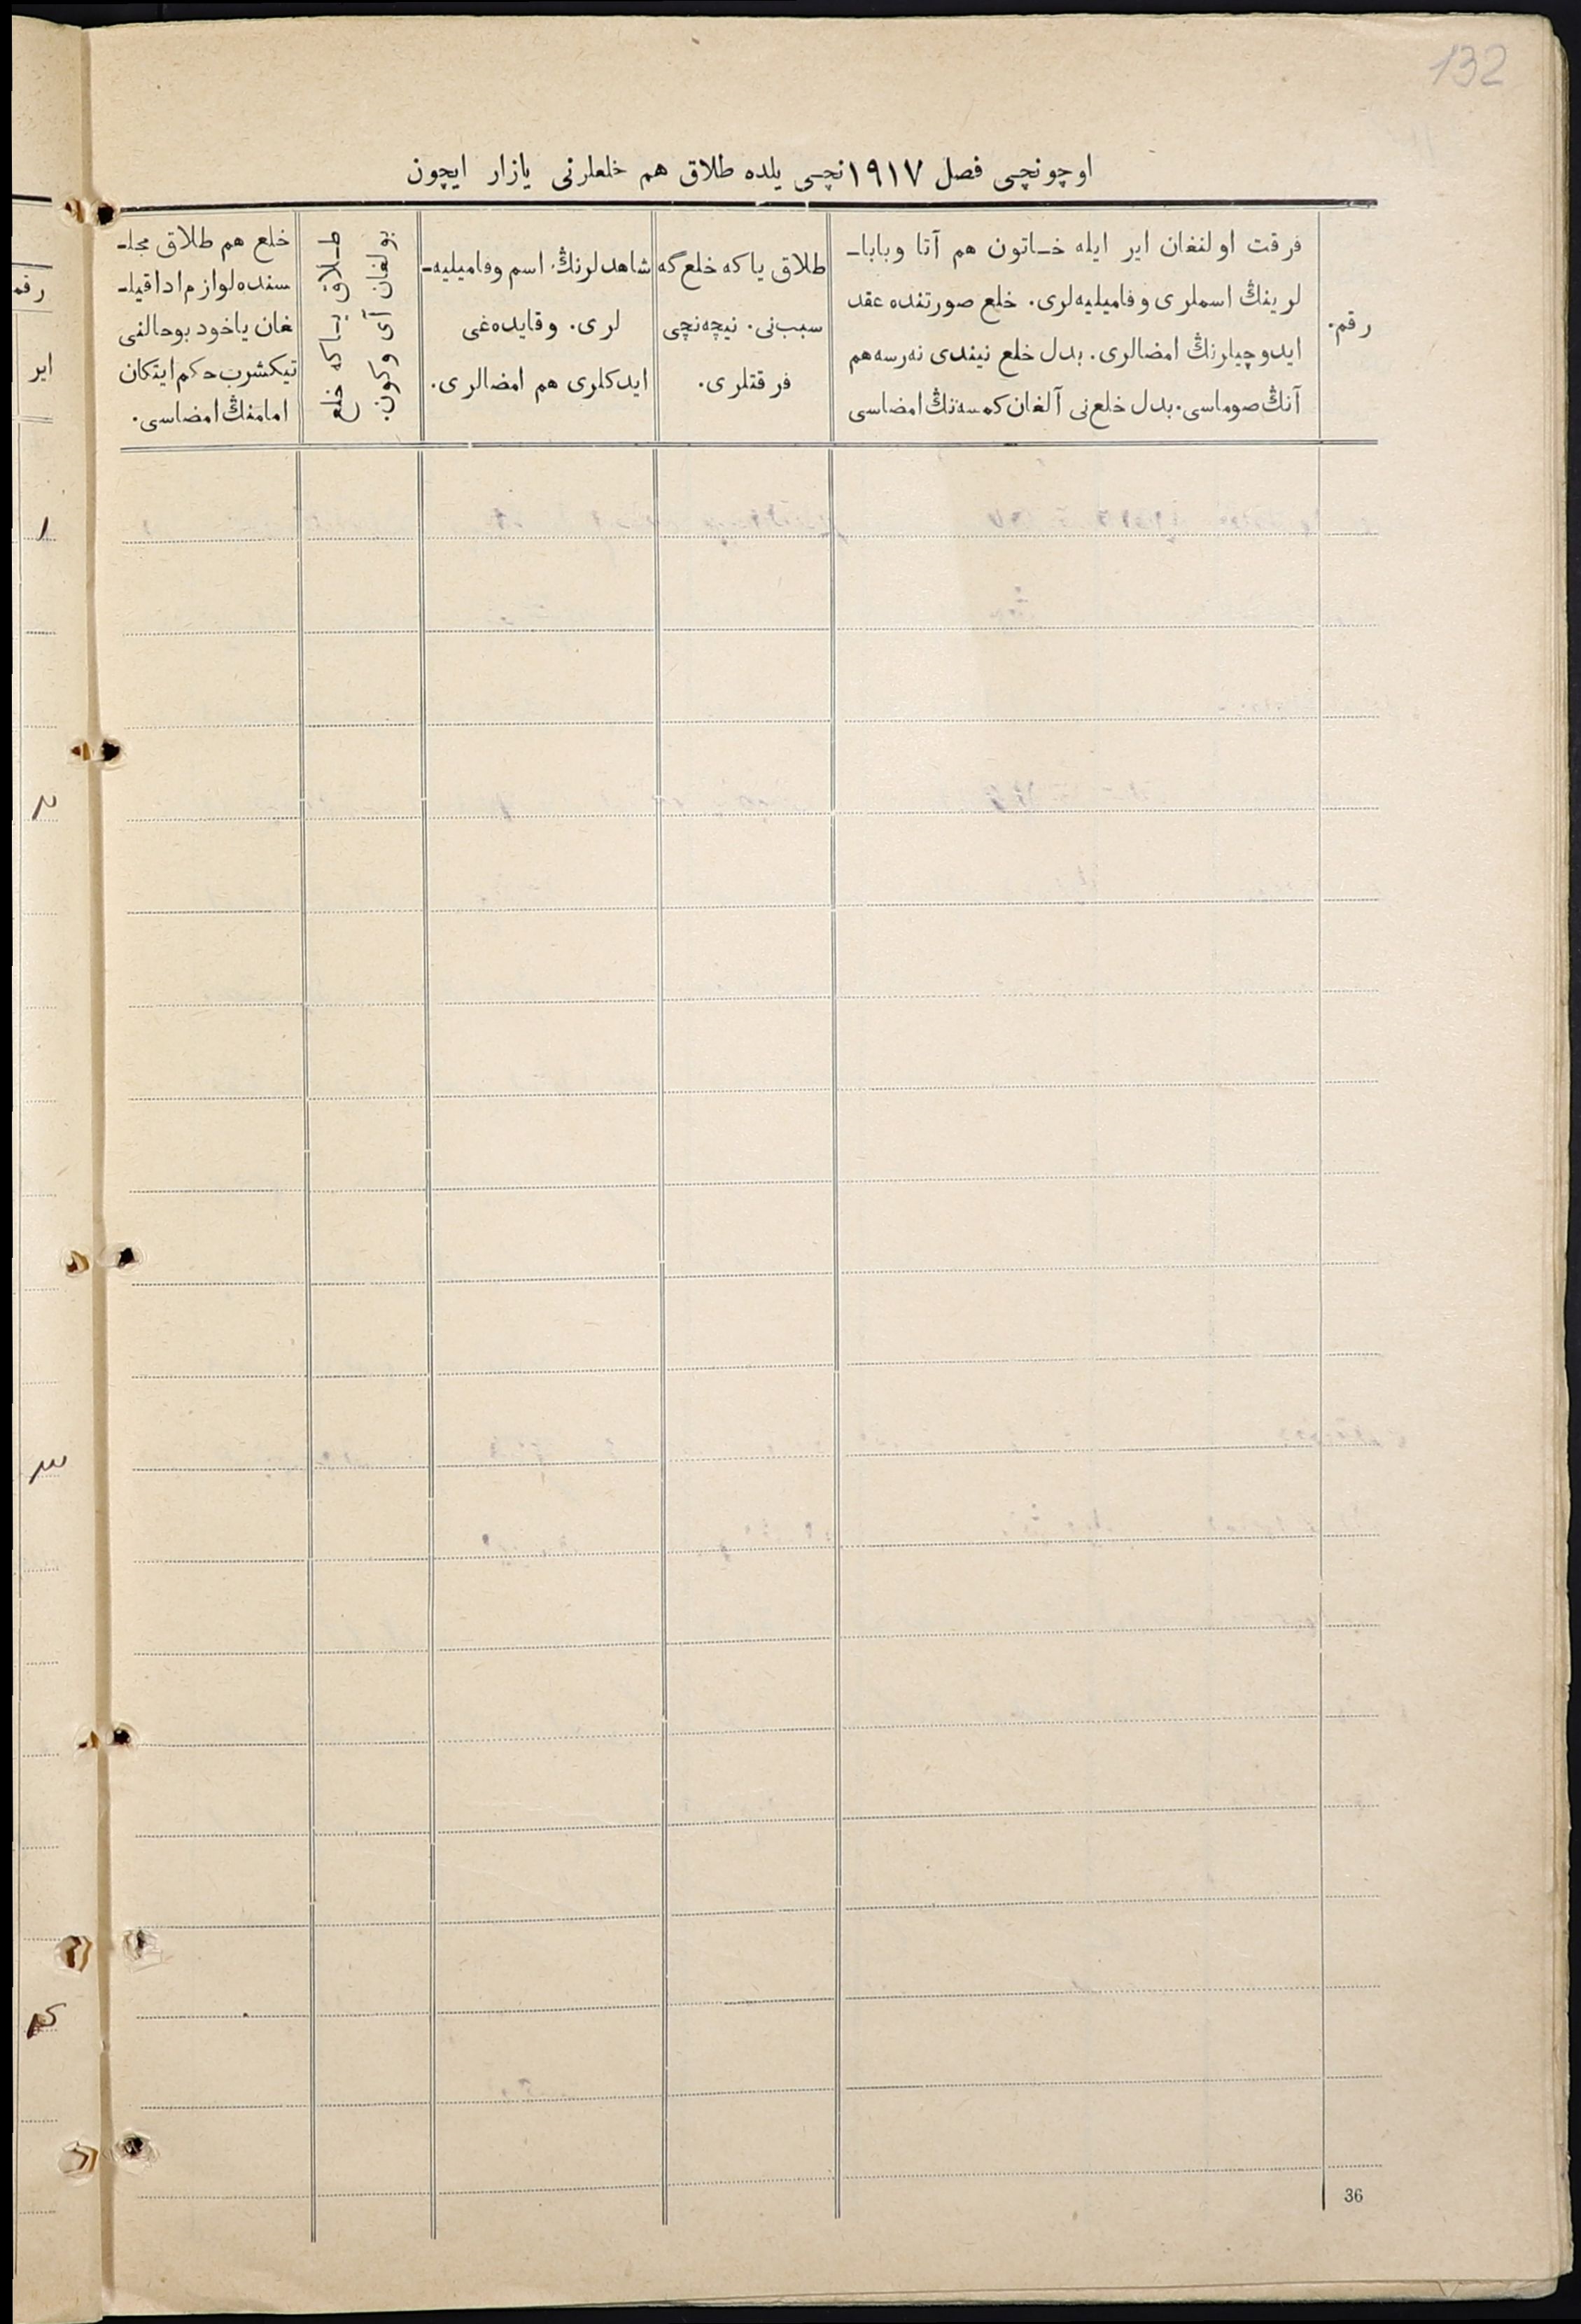 132
اوچونچی فصل ١٩١٧نچی یلده طلاق هم خلعلرنی یازار ایچون
رقم.
فرقت اولنغان ایر ایله خـاتون هم آتا وبابا-
لرینڭ اسملری وفامیلیه‌لری. خلع صورتنده عقد
ایدوچیلرنڭ امضالری. بدل خلع نیندی نه‌رسه هم
آنڭ صوماسی. بدل خلع‌نی آلغان کمسه‌نڭ امضاسی
طلاق یا که خلع گه
سبب‌نی. نیچه‌نچی
فرقتلری.
شاهدلرنڭ اسم وفامیلیه-
لری. وقایده‌غی
ایدکلری هم امضالری.
طـلاق یـا که خلع
بولغان آی وکون.
خلع هم طلاق مجلـ
سنده لوازم ادا قیلـ
غان یاخود بوحالنی
تیکشرب حکم ایتکان
امامنڭ امضاسی.
رقم
ایر
١
٢
٣
٤
36